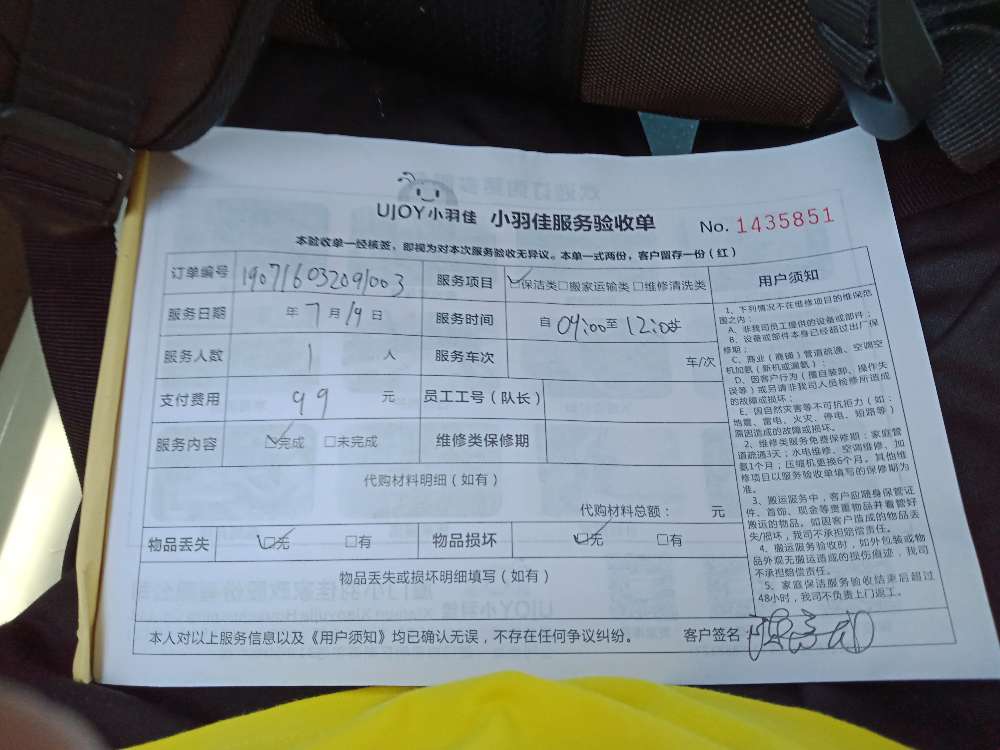 UJOY小羽佳 小羽佳服务验收单 No. 1435851
本验收单一经核签，即视为对本次服务验收无异议。本单一式两份，客户留存一份（红）
订单编号 190716032091003 服务项目 ☑保洁类□搬家运输类□维修清洗类
服务日期 年 7 月 19 日 服务时间 自 09:00 至 12:00
服务人数 1 人 服务车次 车/次
支付费用 99 元 员工工号（队长）
服务内容 ☑完成 □未完成 维修类保修期
代购材料明细（如有）
代购材料总额： 元
物品丢失 ☑无 □有 物品损坏 ☑无 □有
物品丢失或损坏明细填写（如有）
本人对以上服务信息以及《用户须知》均已确认无误，不存在任何争议纠纷。 客户签名：
用户须知
1、下列情况不在维修项目的维保范
围之内：
A、非我司员工提供的设备或部件；
B、设备或部件本身已经超过出厂保
修期；
C、商业（商铺）管道疏通、空调空
机加氨（新机或漏氨）；
D、因客户行为（擅自装卸、操作失
误等）或另请非我司人员检修所造成
的故障或损坏；
E、因自然灾害等不可抗拒力（如：
地震、雷电、火灾、停电、短路等）
原因造成的故障或损坏。
2、维修类服务免费保修期：家庭管
道疏通3天；水电维修、空调维修、加
氨1个月；压缩机更换6个月。其他维
修项目以服务验收单填写的保修期为
准。
3、搬运服务中，客户应随身保管证
件、首饰、现金等贵重物品并看管好
搬运的物品。如因客户造成的物品丢
失/损坏，我司不承担赔偿责任。
4、搬运服务验收时，如外包装或物
品外观无搬运造成的损伤痕迹，我司
不承担赔偿责任。
5、家庭保洁服务验收结束后超过
48小时，我司不负责上门返工。